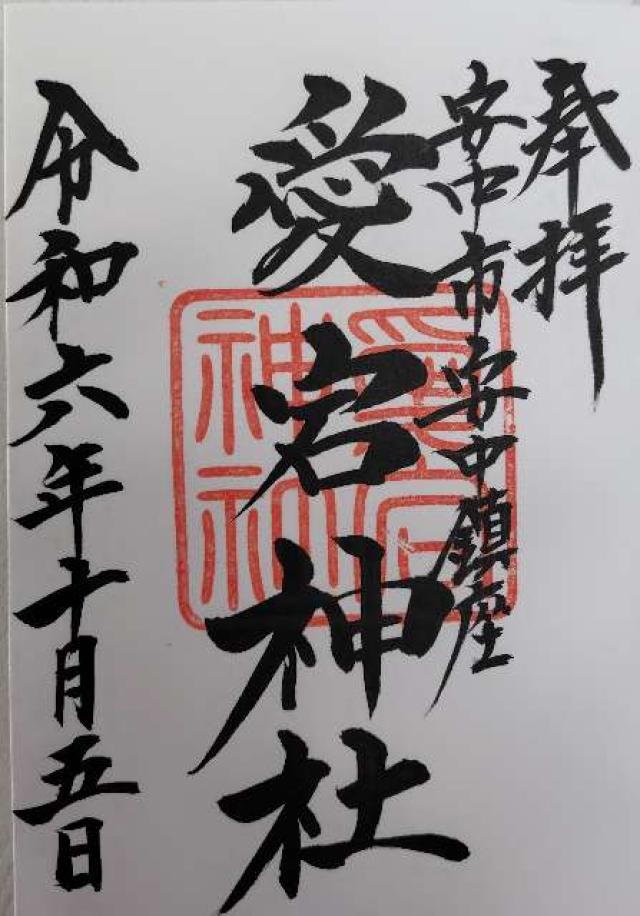 奉拝
安中市安中鎮座
愛宕神社
愛宕神社
令和六年十月五日